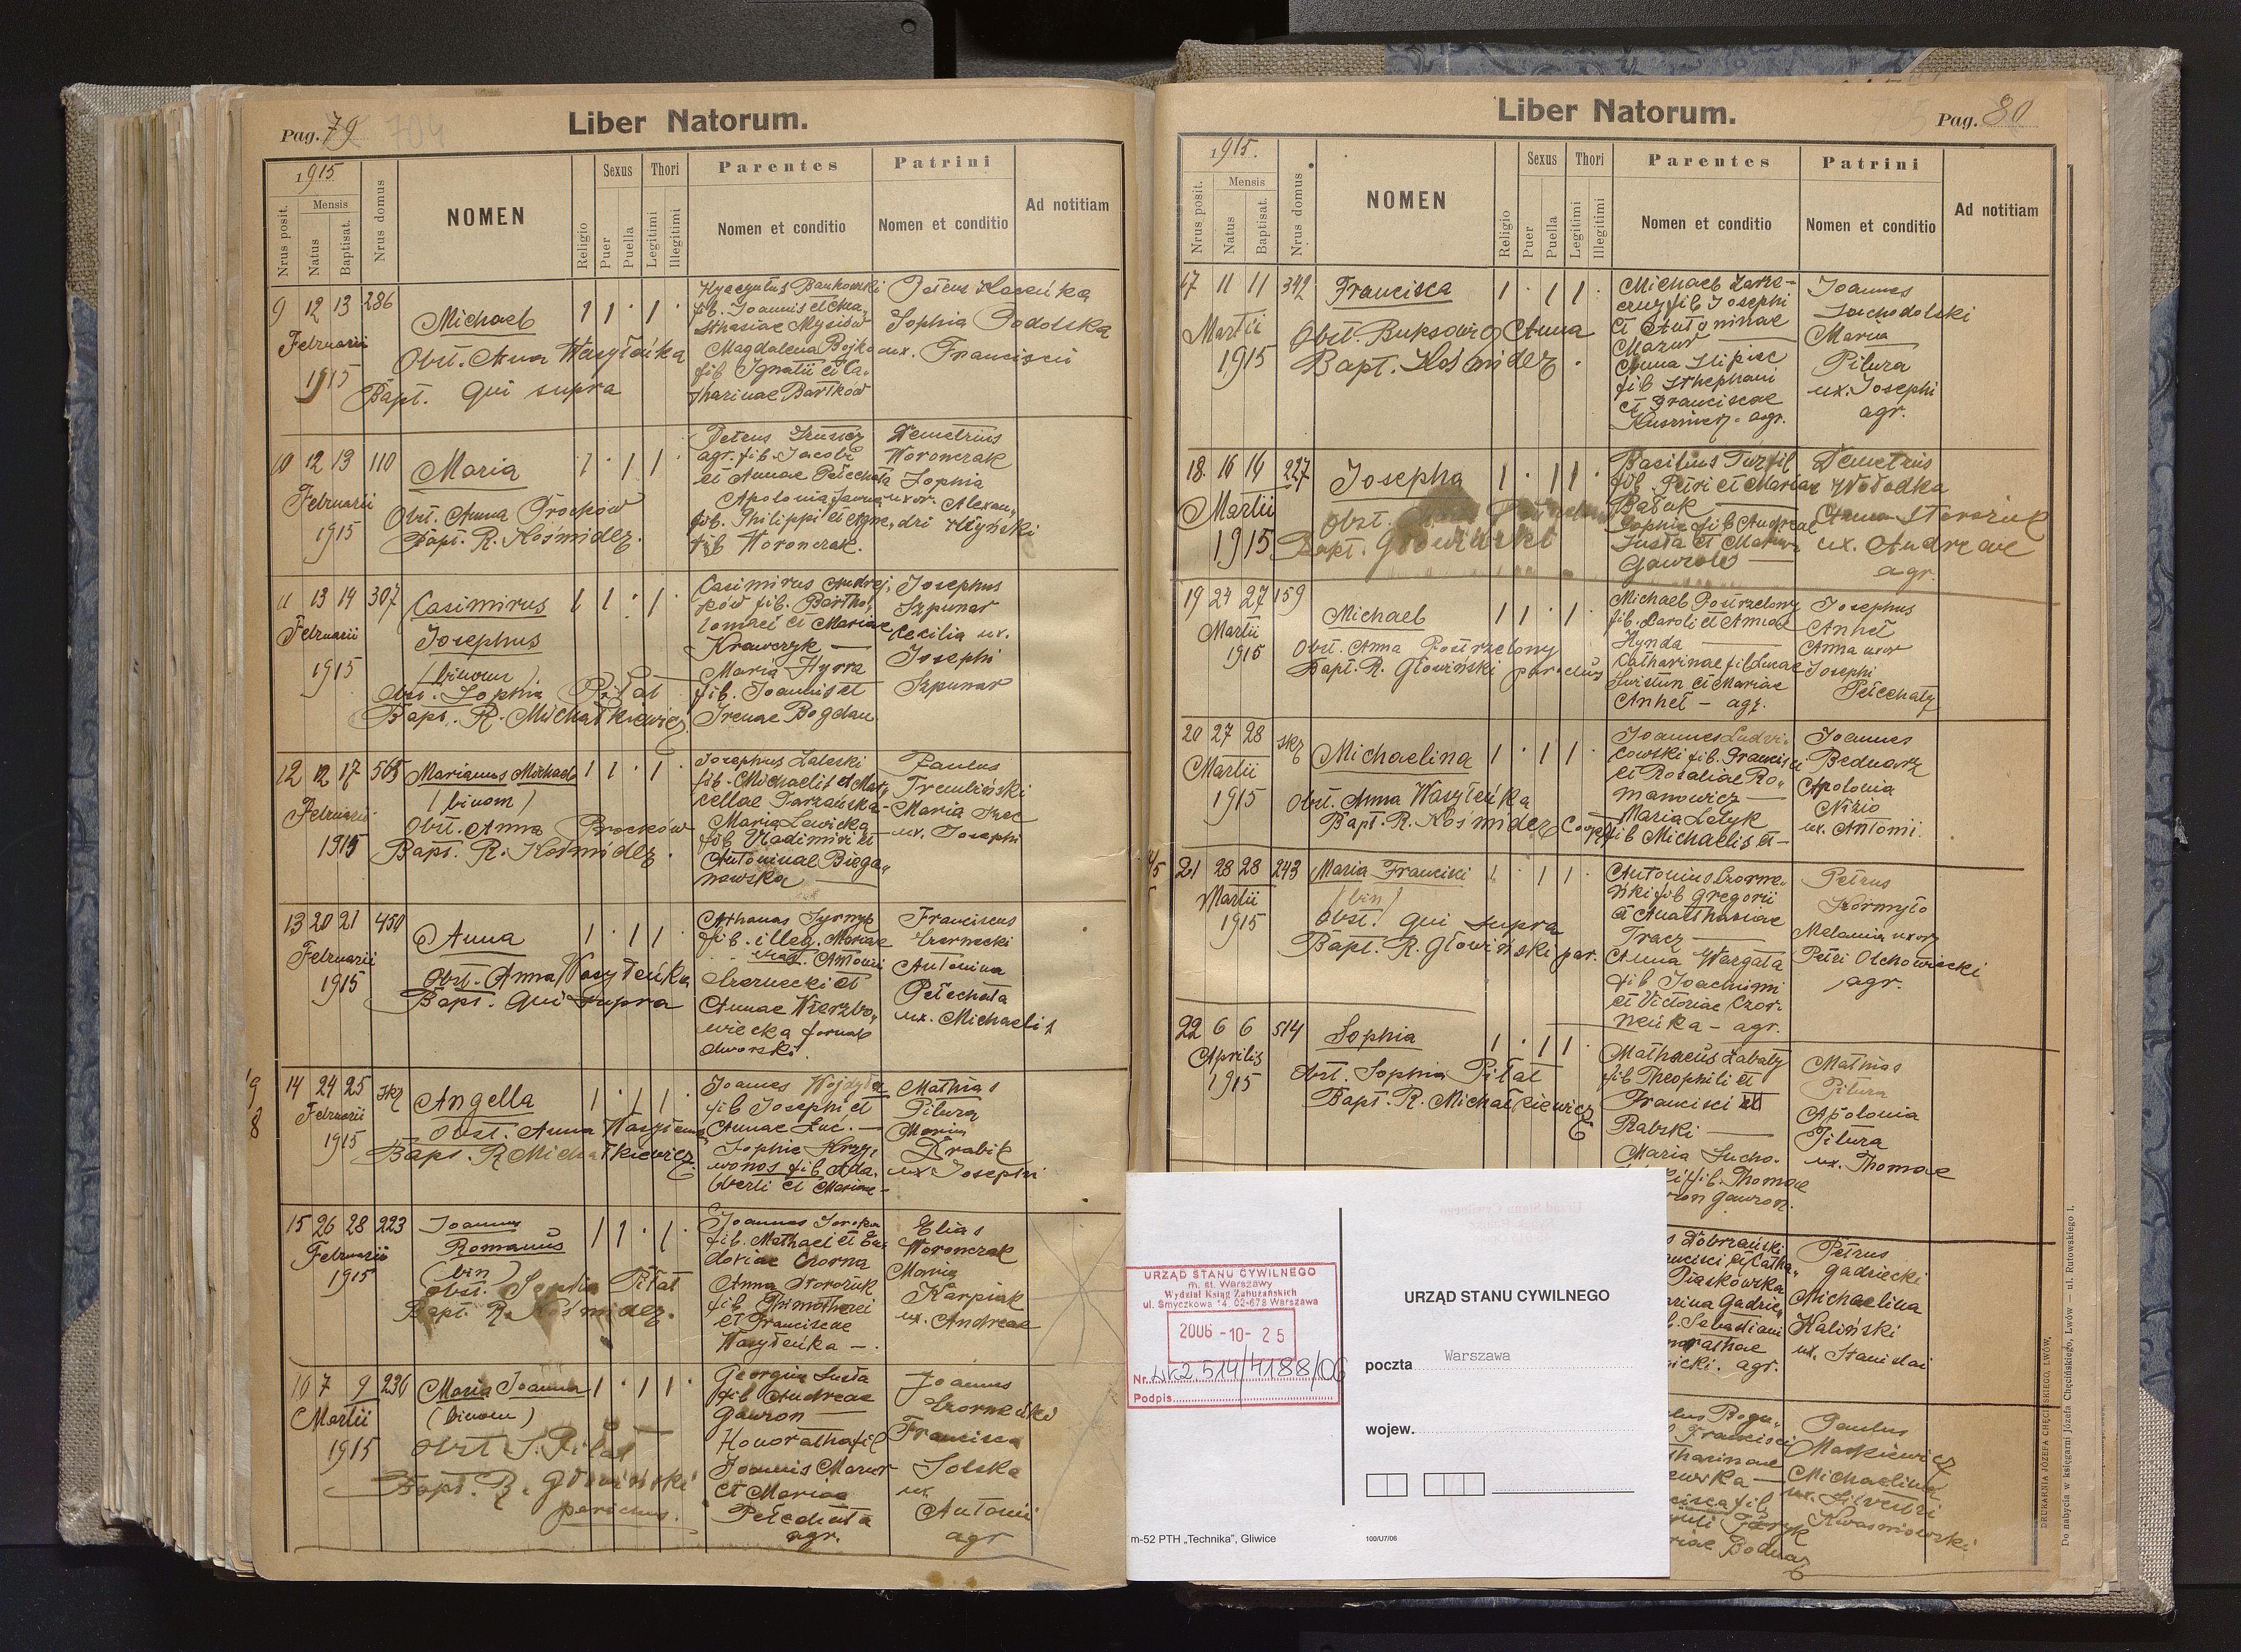 Pag. 79
704
Liber Natorum.
1915
Nrus posit.
Mensis
Natus
Baptisat.
Nrus domus
NOMEN
Religio
Sexus
Puer
Puella
Thori
Legitimi
Illegitimi
Parentes
Nomen et conditio
Patrini
Nomen et conditio
Ad notitiam
9 12 13 286
Februarii
1915
Michael
Obst. Anna Wasyleńka
Bapt. qui supra
1 1 · 1 ·
Hyacyntus Bankowski
fil. Joannis et
Magdalena Bojko
fil Ignatii et Ca-
tharinae Bartków
Petrus
Sophia Podolska
ux. Francisci
10 12 13 110
Februarii
1915
Maria
Obst. Anna Procków
Bapt. R. Kośmider.
1 · 1 1 ·
Petrus
agr. fil. Jacobi
et Annae Pełechata
Apolonia
fil. Philippi et Agne-
Woronczak.
Demetrius
Woronczak
Sophia
uxor. Alexan-
dri
11 13 14 307
Februarii
1915
Casimirus
Josephus
(binom)
Obst. Sophia Piłat
Bapt. R. Michałkiewicz
1 1 · 1 ·
Casimirus Andrej-
ków fil. Bartho-
lomaei et Mariae
Krawczyk —
Maria Hyrra
fil. Joannis et
Irenae Bogdan
Josephus
Szpunar
Cecilia ux.
Josephi
Szpunar
12 12 17 565
Februarii
1915
Marianus Michael
(binom)
Obst. Anna Procków
Bapt. R. Kośmider.
1 1 · 1 ·
Josephus Zaleski
fil. Michaelis et Mar-
cellae Tarzańska-
Maria Lewicka
fil Vladimiri et
Antoninae Biega-
nowska —
Paulus
Trembiński
Maria
ux. Josephi
13 20 21 450
Februarii
1915
Anna
Obst. Anna Wasyleńka
Bapt. qui supra
1 · 1 1 ·
fil. illeg. Mariae
Antonii
Czernecki et
Annae Wierzbo-
wiecka fornal
dworski.
Franciscus
Czernecki
Antonina
Pełechata
ux. Michaelis
14 24 25 skr
Februarii
1915
Angella
Obst. Anna
Bapt. R Michałkiewicz
1 · 1 1 ·
Joannes Wojdyła
fil Josephi et
Annae Luc. —
Sophie Krzy-
wonos fil Ada-
lberti et Mariae -
Mathias
Pitura
Maria
Drabik
ux Josephi
15 26 28 223
Februarii
1915
Joannes
Romanus
(bin)
Obst. Sophia Piłat
Bapt. R. Kośmider.
1 1 · 1 ·
Joannes Soroka
fil. Mathaei et Eu-
dociae Czorna
Anna Storożuk
fil. Thimothaei
et Franciscae
Wasyleńka —
Elias
Woronczak
Maria
Karpiak
ux. Andreae
16 7 9 236
Martii
1915
Maria Joanna
(binom)
Obst S. Piłat
Bapt. R. Głowiński
parochus.
1 · 1 1 ·
Georgius Susta
fil Andreae
Gawron —
Honoratha fil
Joannis Mazur
et Mariae
Pełechata
agr.
Joannes
Czorneńki
Francisca
Solska
ux
Antonii
agr
Liber Natorum.
Pag. 80
1915.
Nrus posit.
Mensis
Natus
Baptisat.
Nrus domus
NOMEN
Religio
Sexus
Puer
Puella
Thori
Legitimi
Illegitimi
Parentes
Nomen et conditio
Patrini
Nomen et conditio
Ad notitiam
17 11 11 342
Martii
1915
Francisca
Obst. Buksowicz Anna
Bapt. Kośmider.
1 · 1 1 ·
Michael
fil Josephi
et Antoninae
Mazur —
Anna
fil Sthephani
et Franciscae
Kusznierz. agr.
Joannes
Suchodolski
Maria
Pitura
ux. Josephi
agr.
18. 16 16 227
Martii
1915
Josepha
Obst.
Bapt. Głowiński
1 · 1 1 ·
Basilius
fil. Petri et Mariae
Sophia fil Andreae
Susta et Mariae
Gawroń —
Demetrius
Wołodka
Anna Storożuk
ux. Andreae
agr.
19 24 27 159
Martii
1915
Michael
Obst. Anna Postrzelony
Bapt. R. Głowiński parochus
1 1 · 1 ·
Michael Postrzelony
fil. Caroli et Annae
Hynda —
Catharinae fil Lucae
Swistun et Mariae
Anheł — agr.
Josephus
Anheł
Anna uxor
Josephi
Pełechaty
20 27 28 skr
Martii
1915
Michaelina
Obst. Anna Wasyleńka
Bapt. R. Kośmider Coop
1 · 1 1 ·
Joannes Ludvi-
cowski fil. Francisci
et Rosaliae Ro-
manowicz —
Maria Letyk
fil Michaelis et -
Joannes
Bednarz
Apolonia
Nizio
ux. Antonii.
21 28 28 243
Martii
1915
Maria Francisci
(bin)
Obst. qui supra
Bapt. R. Głowiński par.
1 · 1 1 ·
Antonius Czorne-
ńki fil Gregorii
et Anasthasiae
Tracz —
Anna Wargata
fil Joachimi
et Victoriae Czor-
neńka — agr.
Petrus
Kormyło
Melania uxor
Petri Olchowiecki
agr.
22 6 6 514
Aprilis
1915
Sophia
Obst. Sophia Piłat
Bapt. R. Michałkiewicz
1 · 1 1 ·
Mathaeus Zabaty
fil Theophili et
Francisci et
Rabski —
Maria Sucho-
fil. Thomae
Gawron.
Mathias
Pitura
Apolonia
Pitura
ux. Thomae
Dobrzański
Piaskówka
Gadzie-
Sebastiani
agr.
Petrus
Gadziecki
Michaelina
Kaliński
ux. Stanislai
Paulus
Maskiewicz
Michaelina
ux. Silvestri
Kwasniowski
URZĄD STANU CYWILNEGO
m. st. Warszawy
Wydział Ksiąg Zabużańskich
ul. Smyczkowa 14, 02-678 Warszawa
2006 -10- 25
Podpis
URZĄD STANU CYWILNEGO
poczta Warszawa
wojew.
m-52 PTH „Technika”, Gliwice
100/U7/06
DRUKARNIA JÓZEFA CHĘCIŃSKIEGO, LWÓW,
Do nabycia w księgarni Józefa Chęcińskiego, Lwów — ul. Rutowskiego 1.